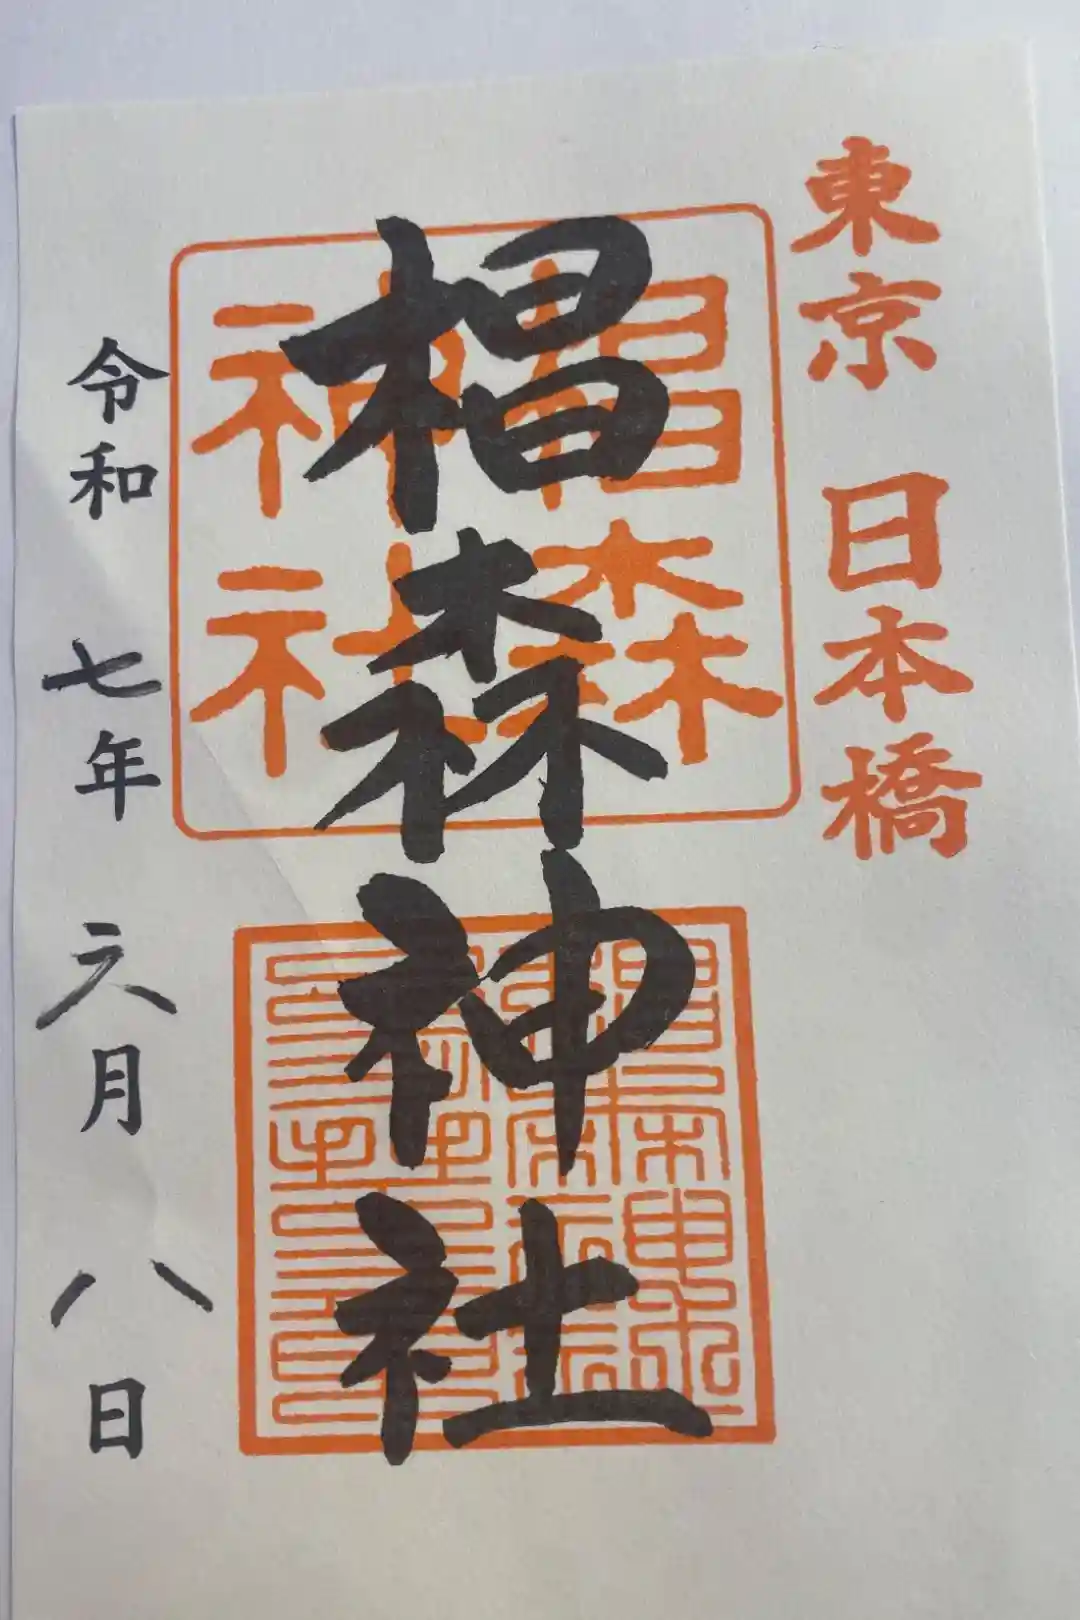 東京 日本橋
椙森神社
椙森
神社
令和 七年 六月 八日